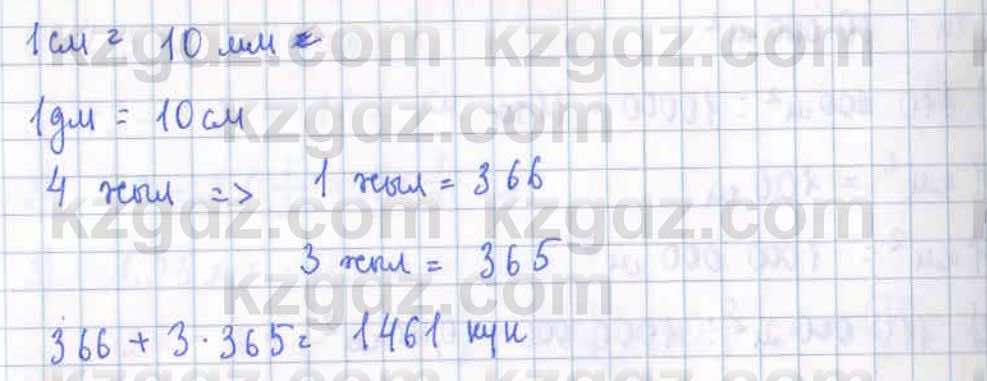 1 см = 10 мм
1 дм = 10 см
4 жыл => 1 жыл = 366
3 жыл = 365
366 + 3 · 365 = 1461 күн
kzgdz.com kzgdz.com
kzgdz.com
kzgdz.com kzgdz.com
kzgdz.com
kzgdz.com kzgdz.com